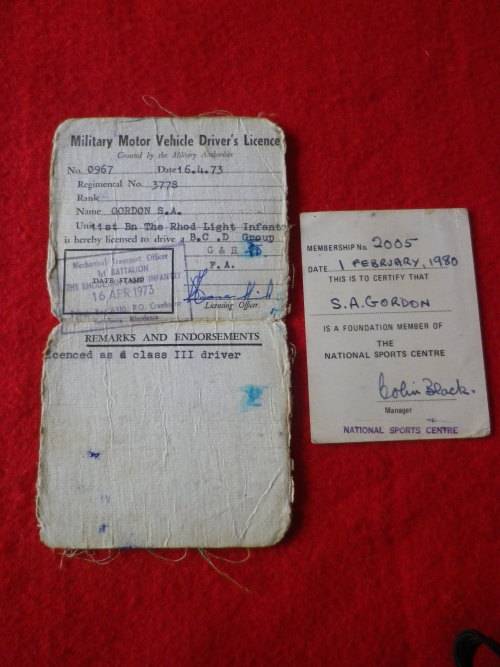 Military Motor Vehicle Driver's Licence
Granted by the Military Authorities
No. 0967 Date 16.4.73
Regimental No. 3778
Rank
Name GORDON S.A.
Unit 1st Bn The Rhod Light Infant
is hereby licensed to drive a B.C.D Group
G & H
F.A.
Mechanical Transport Officer
1st BATTALION
THE RHODESIAN LIGHT INFANTRY
DATE STAMP
16 APR 1973
P.O. Cranborne
Rhodesia
Licensing Officer.
REMARKS AND ENDORSEMENTS
icenced as a class III driver
MEMBERSHIP No. 2005
DATE 1 FEBRUARY, 1980
THIS IS TO CERTIFY THAT
S.A. GORDON
IS A FOUNDATION MEMBER OF
THE
NATIONAL SPORTS CENTRE
Colin Black.
Manager
NATIONAL SPORTS CENTRE